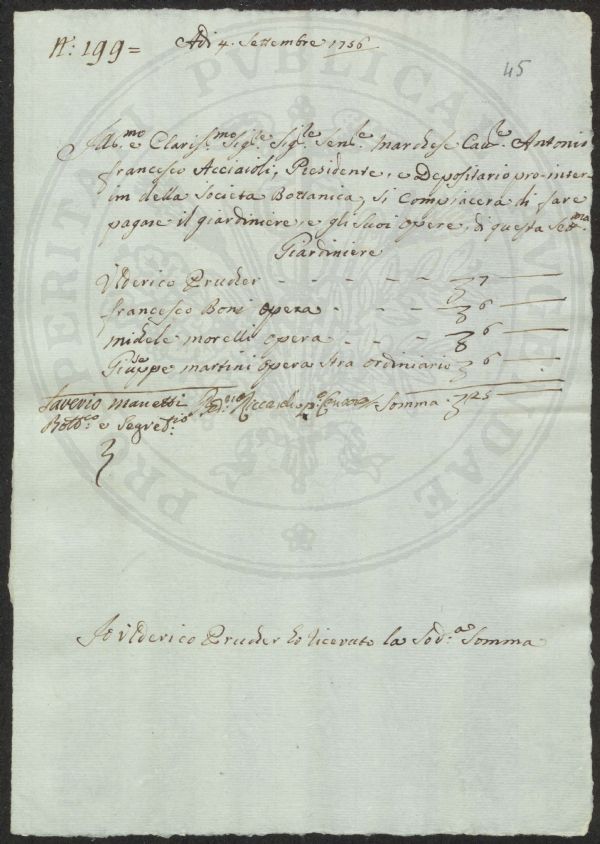 N.º 199=
Adì 4. Settembre 1756
45
Ill.mo e Clariss.mo Sig.re Sig.re Sen.re Marchese Cav.re Antonio
francesco Acciaioli, Presidente, e Depositario pro-inter-
im della Societa Bottanica, si Compiacerà di fare
pagare il giardiniere, e gli suoi opere, di questa Sett.ma
Giardiniere
Ulderico Prucker - - - - - 7 —
francesco Boni opera - - - - 6 —
michele morelli opera - - - 6 —
Giuseppe martini opera stra ordinario 6 —
Saverio Manetti Somma 25 —
Bott.co e Segret.rio
Io Ulderico Prucker ho ricevuto la Sod.a Somma
PERITIA PUBLICAE